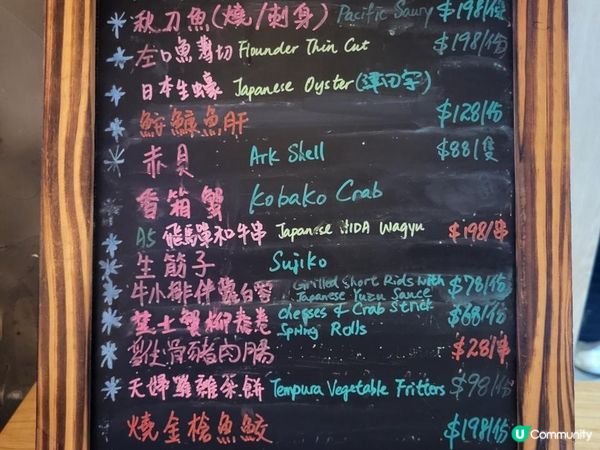 秋刀魚(燒/刺身) Pacific Saury $198/份
左口魚薄切 Flounder Thin Cut $198/份
日本生蠔 Japanese Oyster (津田宇)
鮟鱇魚肝 $128/份
赤貝 Ark Shell $88/隻
香箱蟹 Kobako Crab
A5 飛驒和牛串 Japanese HIDA Wagyu $198/串
生筋子 Sujiko
牛小排伴 Grilled Short Ribs with Japanese Yuzu Sauce $78/份
芝士蟹柳春卷 Cheeses & Crab Stick Spring Rolls $68/份
豬肉腸 $28/串
天婦羅雜菜餅 Tempura Vegetable Fritters $98/份
燒金槍魚鮫 $198/份
U Community